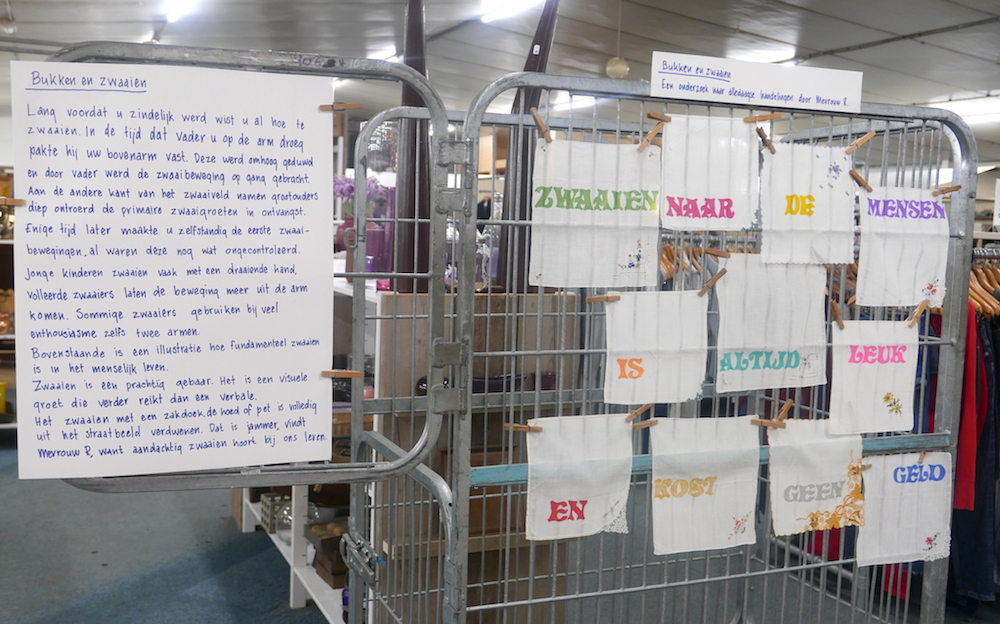 Bukken en zwaaien
Lang voordat u zindelijk werd wist u al hoe te
zwaaien. In de tijd dat vader u op de arm droeg
pakte hij uw bovenarm vast. Deze werd omhoog geduwd
en door vader werd de zwaaibeweging op gang gebracht.
Aan de andere kant van het zwaaiveld namen grootouders
diep ontroerd de primaire zwaaigroeten in ontvangst.
Enige tijd later maakte u zelfstandig de eerste zwaai-
bewegingen, al waren deze nog wat ongecontroleerd.
Jonge kinderen zwaaien vaak met een draaiende hand,
volleerde zwaaiers laten de beweging meer uit de arm
komen. Sommige zwaaiers gebruiken bij veel
enthousiasme zelfs twee armen.
Bovenstaande is een illustratie hoe fundamenteel zwaaien
is in het menselijk leven.
Zwaaien is een prachtig gebaar. Het is een visuele
groet die verder reikt dan een verbale.
Het zwaaien met een zakdoek, de hoed of pet is volledig
uit het straatbeeld verdwenen. Dat is jammer, vindt
Mevrouw R, want aandachtig zwaaien hoort bij ons leven.
Bukken en zwaaien
Een onderzoek naar alledaagse handelingen door Mevrouw R.
ZWAAIEN NAAR DE MENSEN
IS ALTIJD LEUK
EN KOST GEEN GELD